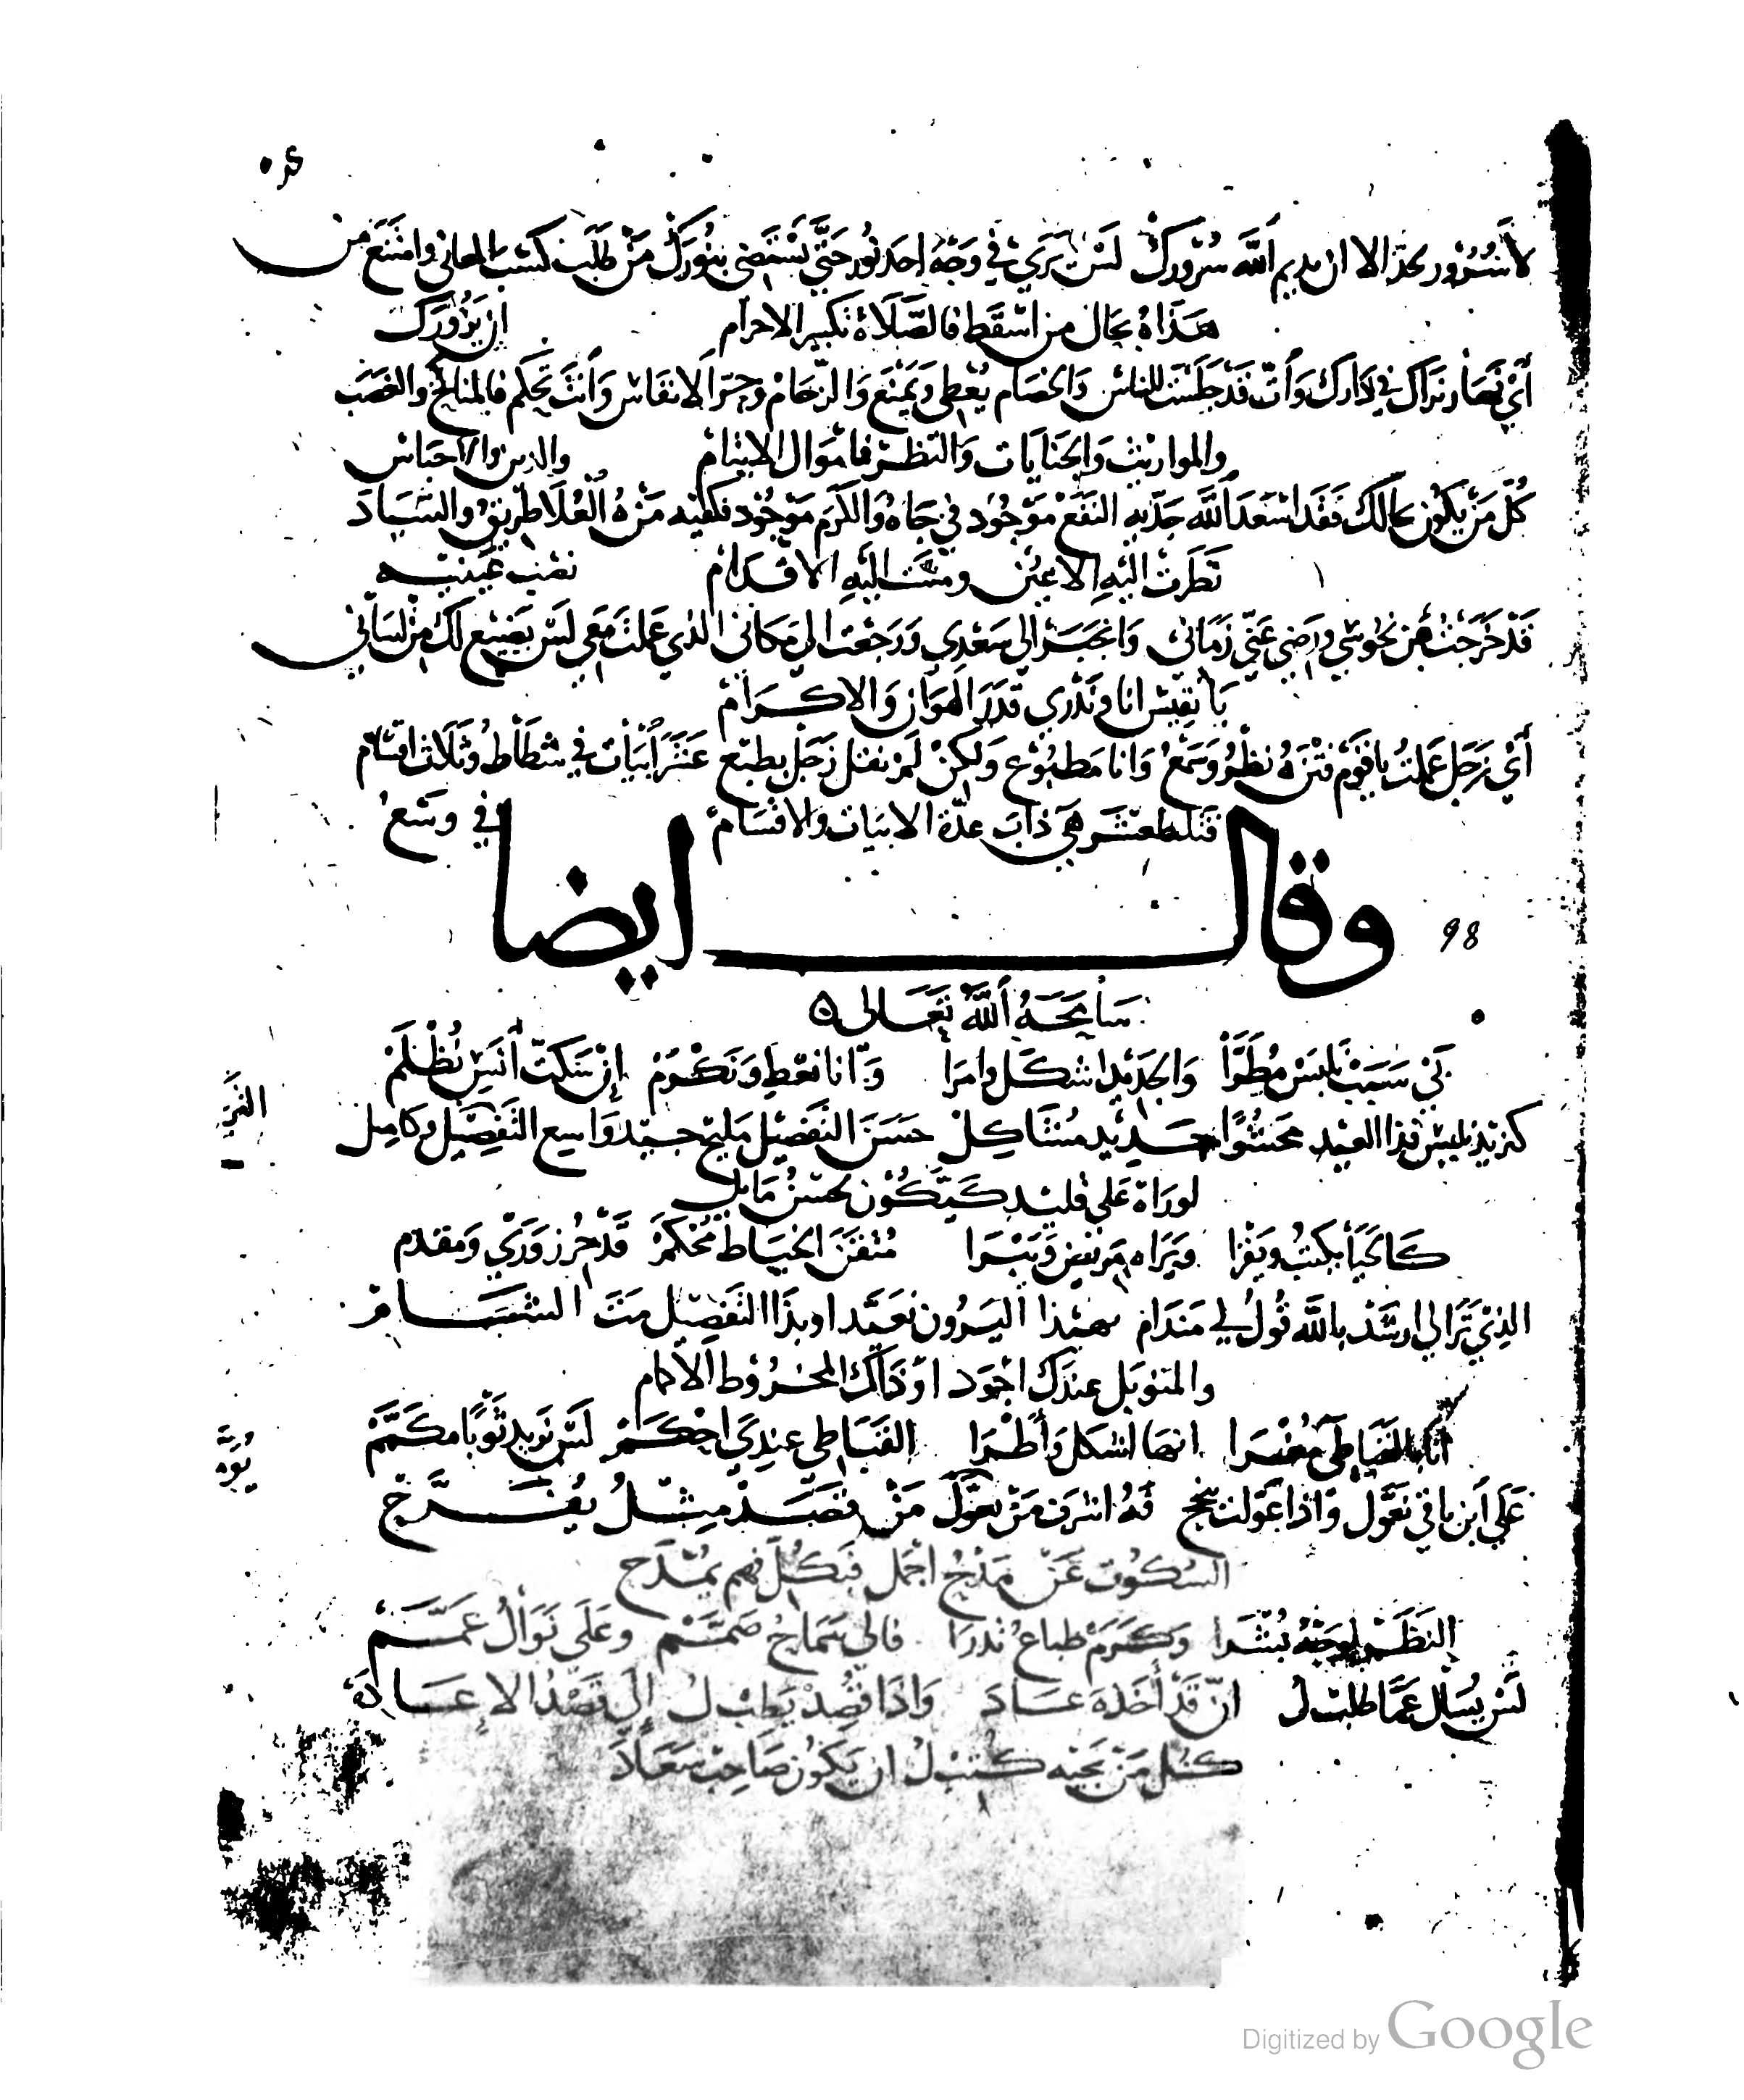 لا سُرُور يحد الا ان يديم اللَّه سُرورك لَسْ يَرَي في وَجْهْ احَد نُور حَتَّي يَسْتَضِي بنُورَكْ مَنْ طَلَبْ كسْب المعاني وامْتَنَعْ من
هَذَاهُ بحَال من اسْقَط فالصَّلَاة تكبير الاحرام ان يزُورَكْ
أيْ نَهَارْ نَرَاكْ في دَارَكْ وَأنتَ قَدْ جَلَسْتْ للناسْ والخصَام يُعْطِي وَيَمْنَعْ وَالزّحَامْ وحرّ الانفاسْ وَأنتَ تحكم فالمنَاكح والغصَب
والموَاريث وَالجنَايَات وَالنّظَرْ فامْوَال الايتامْ والدين والاحبَاسْ
كُلّ مَنْ يكُون بحالكْ فَقَد اسْعَد اللَّه جَدّيه النفَعْ مَوْجُود في جَاهُ وَالكَرَم مَوْجُود فكفّيه مَنْ هُ الْعُلَا طريقُ والسّيَادَ
نَظَرتْ اليْهِ الاعْيُن ومشَت اليْهِ الاقْدَامْ نصْب عَينيْه
قَدْ خَرَجْتْ من نحُوسِي ورَضِي عَنّي زَمَاني وَانجَبَرْ الي سَعْدِي وَرَجَعْت الي مَكَاني الذي عَملت مَعي لَسْ يَضيعْ لكْ من لسَاني
يَا نفيسْ انا ونَدْري قَدَر الهَوَان وَالاكرَامْ
أيْ زَجَل عَملتُ يا قَوْم فَنْزَهُ نظرُ وَسَمْعُ وَانا مَطبُوعْ وَلكنْ لَمْ نقُل زجَلْ بطبْع عَشَرْ أبيَات في شطَاطُ وثلَاث اقسَام
فتلطعشَر هي ذابَ عدّة الابيَات والاقْسَامْ في وسْعُ
وقال ايضا
98
سَامحَهُ اللَّهُ تَعَالي ه
لَيْ سَبَبْ نلبَسْ مُطَرَّا وَالجَديد اشكَل وامرَا وَانا نعْطِ ونكْرَمْ إنْ سَكَتّ أنسِي نُظْلَمْ
كنريد نلبَسْ فذا العيد محشُوا جَديد مُتشَاكِلْ حسَنَ التّفصِيل مَليح جيّد وَاسِع التّفصِيل وكامِل
لورَاهْ عَلي قليد كيكُون بحسْنُ مَايل
كالحيَا بكتبُ ويقرَا ويرَاه مَريضْ وَيَبْرَا مُتْقَن الخيَاطَ مُحْكَمْ قَدْ حُرز وَرَي ومقدّم
الذِي تَرَا لي ارشَدْ باللَّه قُولُ لي مَنَدَام بهَذا اليَرُون نعمَد او بذَا التّفصِيل متَ الشّام
والمنوبَل عندَك اجْوَد اوْ ذَاكْ المخرُوط الاكمام
انَا بالقبَاطي مغرَا انهَا اشكَل وَأطْرَا القبَاطي عندِي احْكَمْ لَسْ نَريد ثَوبًا مكَمَّمْ
عَلي ابن باقي نعَوّل وَاذا عَوّلت ننجح فَهُ اشرَف مَنْ يعَوّل مَنْ قصَدْ مِثلُ يُفرَّحْ
السكُوت عَنْ مَدْحُ اجْمَل فبكُلّ فهم يُمْدَح
النظَرْ لوَجْهُ بُشرَا وَكَرَمْ طباعُ ندرَا فالي سَمَاحُ صَمّمْ وعَلَي نَوَالُ عَمّمْ
لَسْ يسَال عَمّا طلبت لُ انّ قَدْ أخَذهَ عَادَ وَاذَا قُصِدْ يَطِب لُ إلي قَصْدُ الاعَادَهْ
كُل مَنْ يجيْه كُتبْ لُ ان يَكُون صَاحِب سَعَادَ